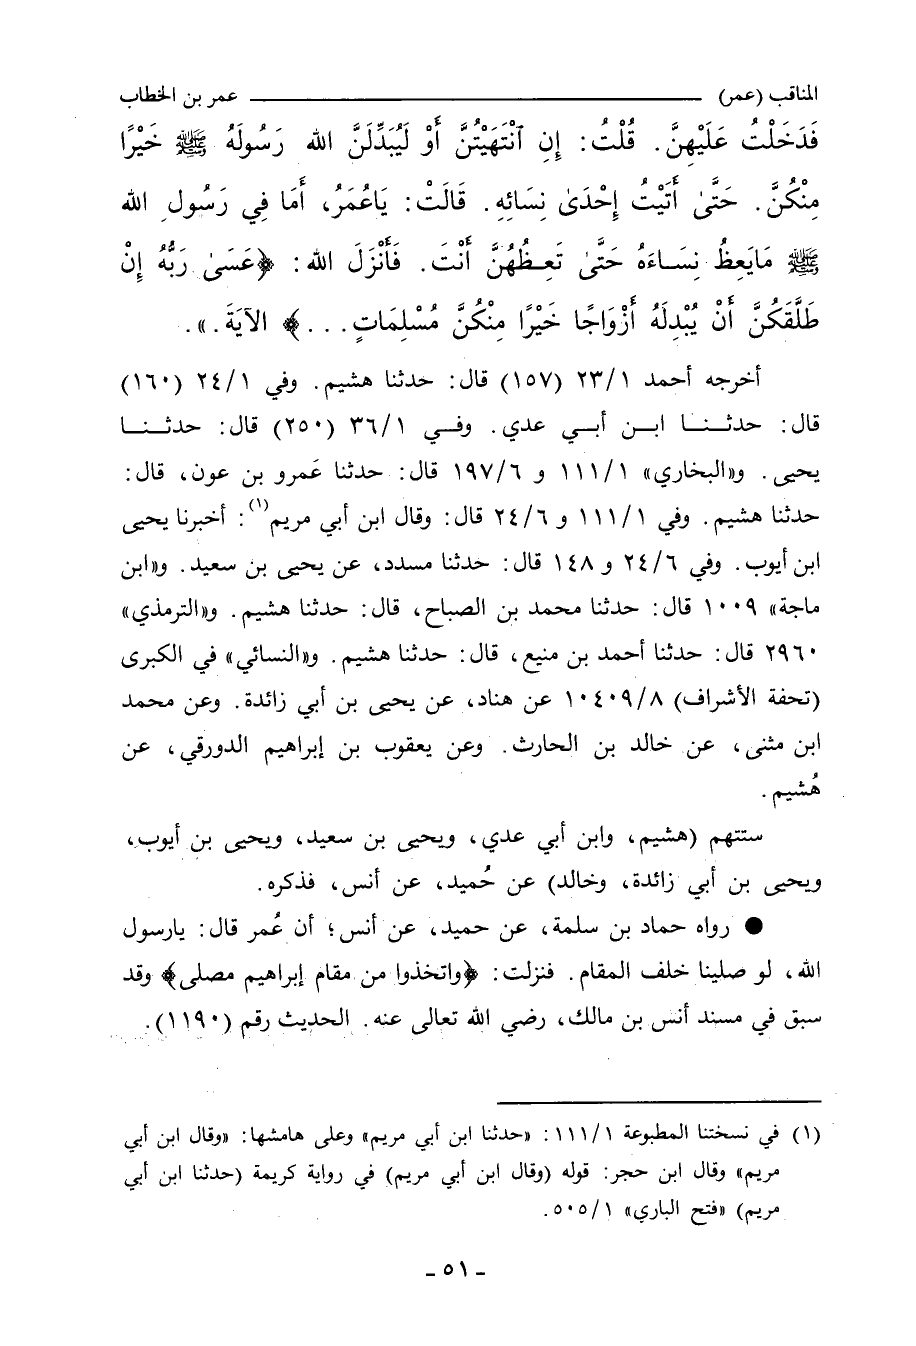 المناقب (عمر) ـــــــــــــــــــــــــــــــ عمر بن الخطاب
فَدَخَلْتُ عَلَيْهِنَّ. قُلْتُ: إِنِ ٱنْتَهَيْتُنَّ أَوْ لَيُبَدِّلَنَّ الله رَسُولَهُ ﷺ خَيْرًا
مِنْكُنَّ. حَتَّىٰ أَتَيْتُ إِحْدَىٰ نِسَائِهِ. قَالَتْ: يَاعُمَرُ، أَمَا فِي رَسُولِ الله
ﷺ مَايَعِظُ نِسَاءَهُ حَتَّىٰ تَعِظُهُنَّ أَنْتَ. فَأَنْزَلَ الله: ﴿عَسَىٰ رَبُّهُ إِنْ
طَلَّقَكُنَّ أَنْ يُبْدِلَهُ أَزْوَاجًا خَيْرًا مِنْكُنَّ مُسْلِمَاتٍ...﴾ الآيَةَ.».
أخرجه أحمد ٢٣/١ (١٥٧) قال: حدثنا هشيم. وفي ٢٤/١ (١٦٠)
قال: حدثنا ابن أبي عدي. وفي ٣٦/١ (٢٥٠) قال: حدثنا
يحيى. و«البخاري» ١١١/١ و ١٩٧/٦ قال: حدثنا عَمرو بن عون، قال:
حدثنا هشيم. وفي ١١١/١ و ٢٤/٦ قال: وقال ابن أبي مريم(١): أخبرنا يحيى
ابن أيوب. وفي ٢٤/٦ و ١٤٨ قال: حدثنا مسدد، عن يحيى بن سعيد. و«ابن
ماجة» ١٠٠٩ قال: حدثنا محمد بن الصباح، قال: حدثنا هشيم. و«الترمذي»
٢٩٦٠ قال: حدثنا أحمد بن منيع، قال: حدثنا هشيم. و«النسائي» في الكبرى
(تحفة الأشراف) ١٠٤٠٩/٨ عن هناد، عن يحيى بن أبي زائدة. وعن محمد
ابن مثنى، عن خالد بن الحارث. وعن يعقوب بن إبراهيم الدورقي، عن
هُشيم.
ستتهم (هشيم، وابن أبي عدي، ويحيى بن سعيد، ويحيى بن أيوب،
ويحيى بن أبي زائدة، وخالد) عن حُميد، عن أنس، فذكره.
● رواه حماد بن سلمة، عن حميد، عن أنس؛ أن عُمر قال: يارسول
الله، لو صلينا خلف المقام. فنزلت: ﴿واتخذوا من مقام إبراهيم مصلى﴾ وقد
سبق في مسند أنس بن مالك، رضي الله تعالى عنه. الحديث رقم (١١٩٠).
(١) في نسختنا المطبوعة ١١١/١: «حدثنا ابن أبي مريم» وعلى هامشها: «وقال ابن أبي
مريم» وقال ابن حجر: قوله (وقال ابن أبي مريم) في رواية كريمة (حدثنا ابن أبي
مريم) «فتح الباري» ٥٠٥/١.
- ٥١ -